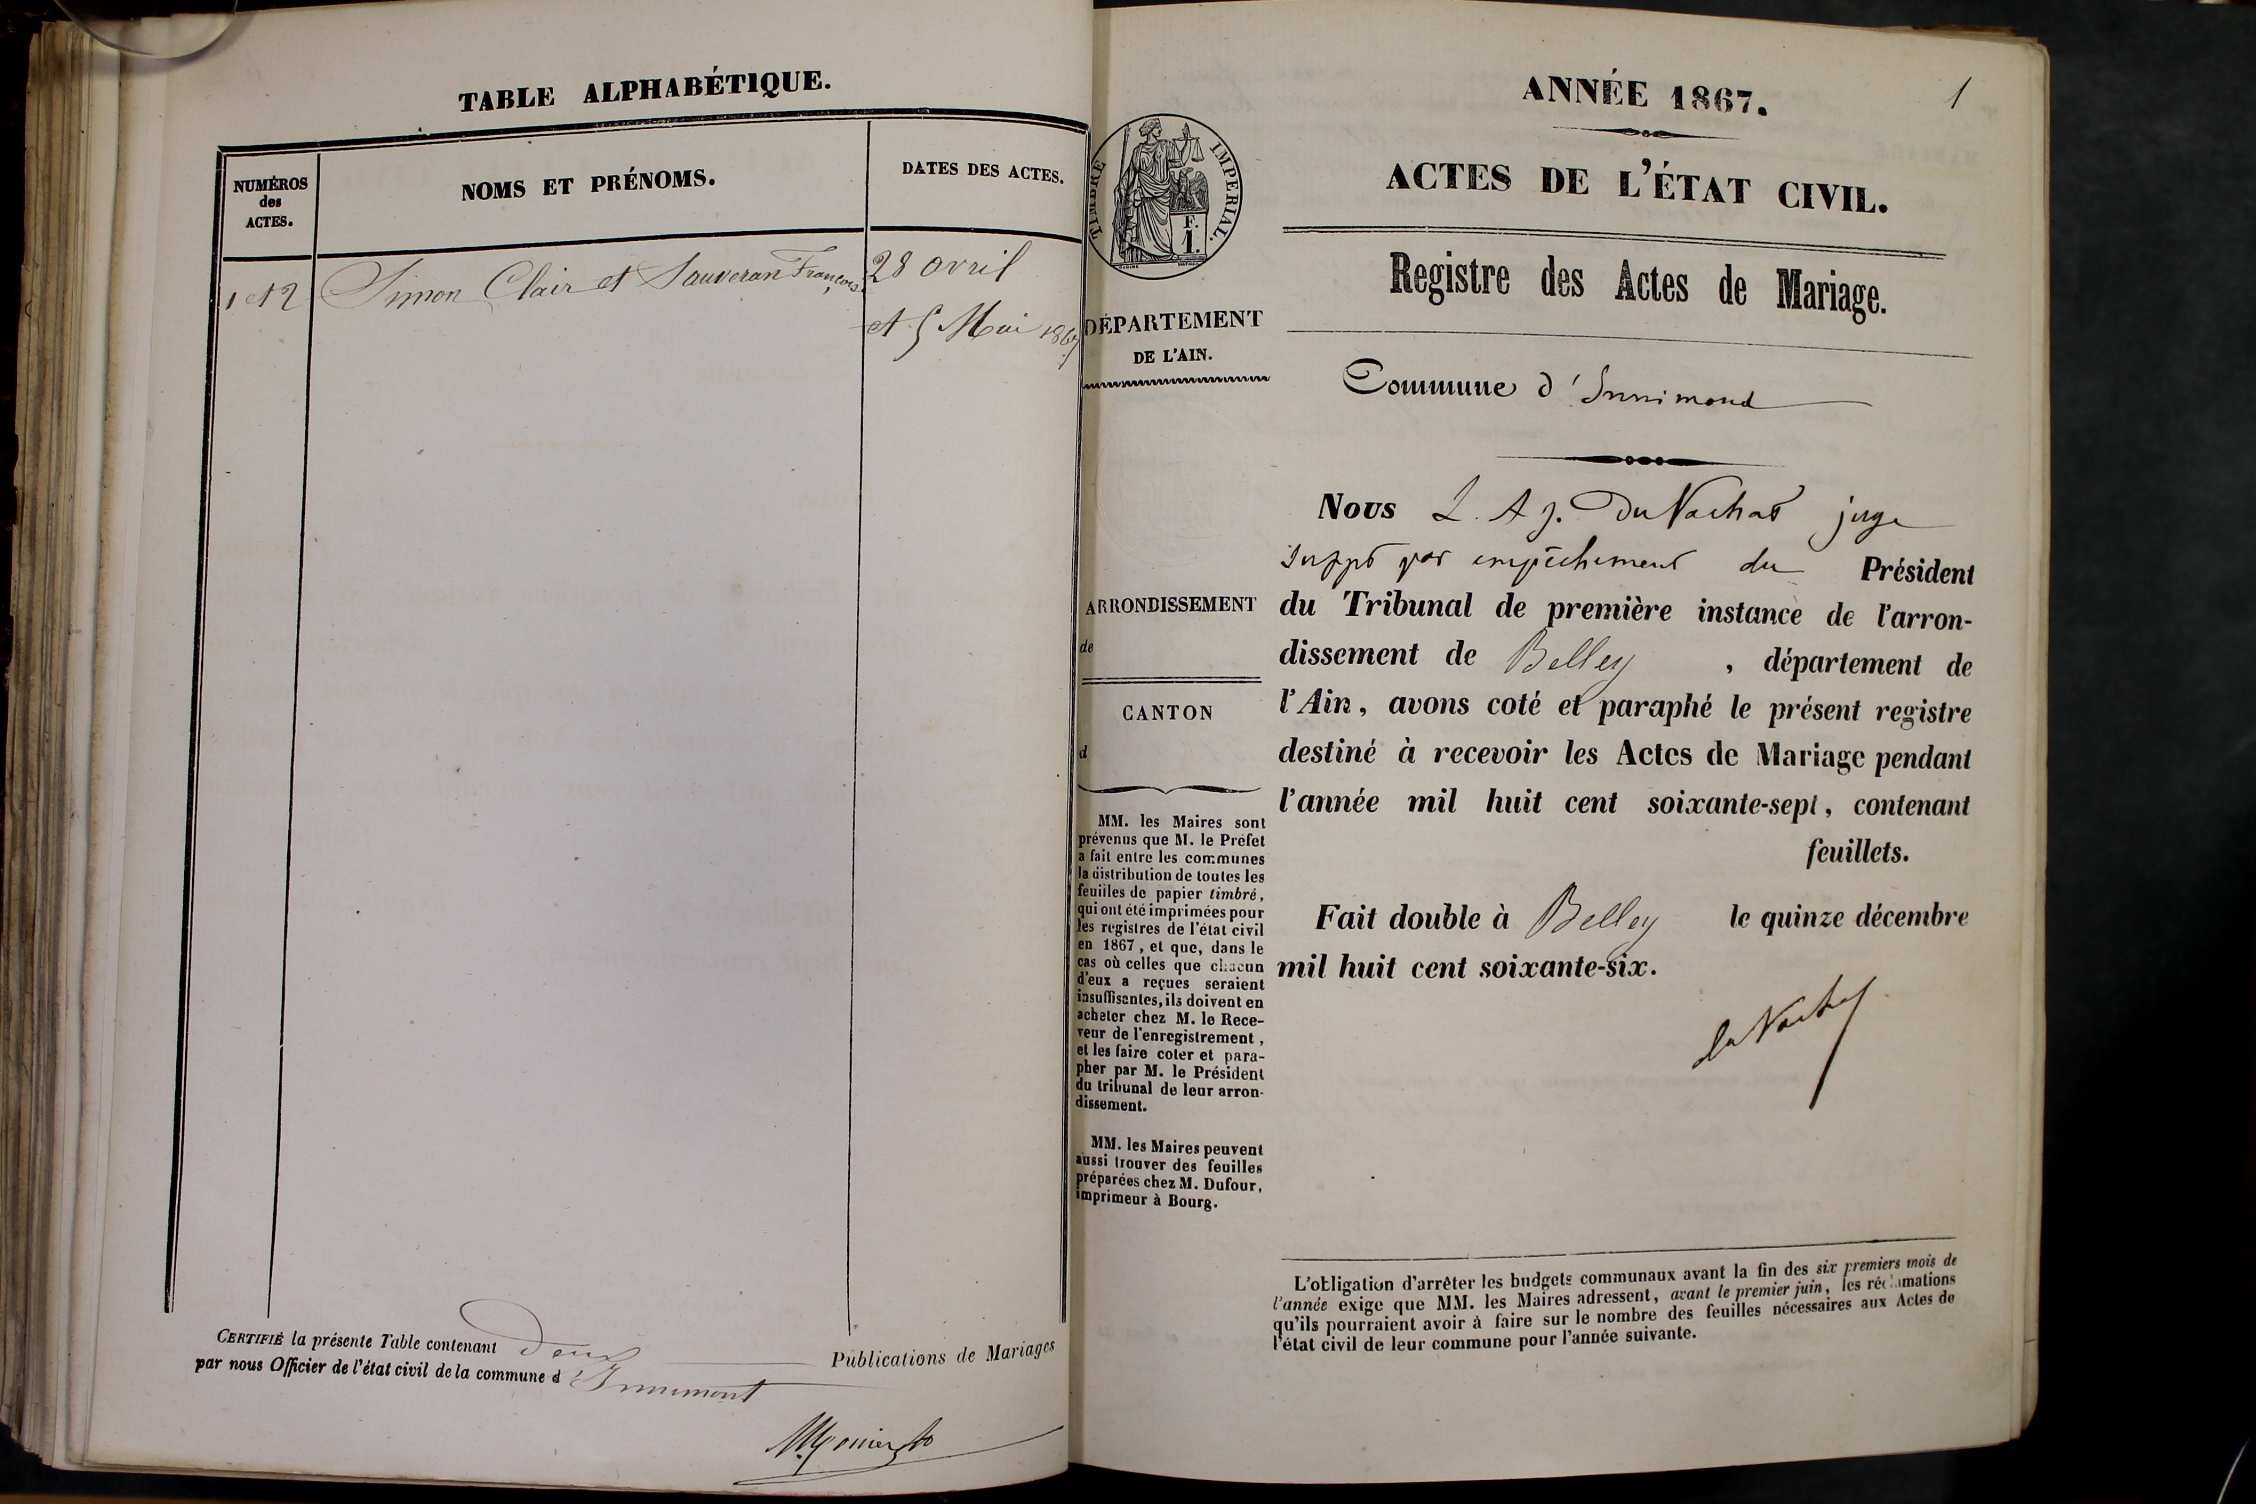 TABLE ALPHABÉTIQUE.
NUMÉROS
des
ACTES.
NOMS ET PRÉNOMS.
DATES DES ACTES.
1 et 2 Simon Clair et Sauveran François 28 avril
et 5 Mai 1867
CERTIFIÉ la présente Table contenant deux Publications de Mariages
par nous Officier de l'état civil de la commune d'Innimont
ANNÉE 1867.
1
TIMBRE IMPÉRIAL.
F.
1.
ACTES DE L'ÉTAT CIVIL.
Registre des Actes de Mariage.
DÉPARTEMENT
DE L'AIN.
Commune d'Innimond
ARRONDISSEMENT
de
CANTON
d
MM. les Maires sont
prévenus que M. le Préfet
a fait entre les communes
la distribution de toutes les
feuilles de papier timbré,
qui ont été imprimées pour
les registres de l'état civil
en 1867, et que, dans le
cas où celles que chacun
d'eux a reçues seraient
insuffisantes, ils doivent en
acheter chez M. le Rece-
veur de l'enregistrement,
et les faire coter et para-
pher par M. le Président
du tribunal de leur arron-
dissement.
MM. les Maires peuvent
aussi trouver des feuilles
préparées chez M. Dufour,
imprimeur à Bourg.
Nous L. A J. Du Vachat juge
suppt par empêchement du Président
du Tribunal de première instance de l'arron-
dissement de Belley, département de
l'Ain, avons coté et paraphé le présent registre
destiné à recevoir les Actes de Mariage pendant
l'année mil huit cent soixante-sept, contenant
feuillets.
Fait double à Belley le quinze décembre
mil huit cent soixante-six.
du Vachat
L'obligation d'arrêter les budgets communaux avant la fin des six premiers mois de
l'année exige que MM. les Maires adressent, avant le premier juin, les réclamations
qu'ils pourraient avoir à faire sur le nombre des feuilles nécessaires aux Actes de
l'état civil de leur commune pour l'année suivante.